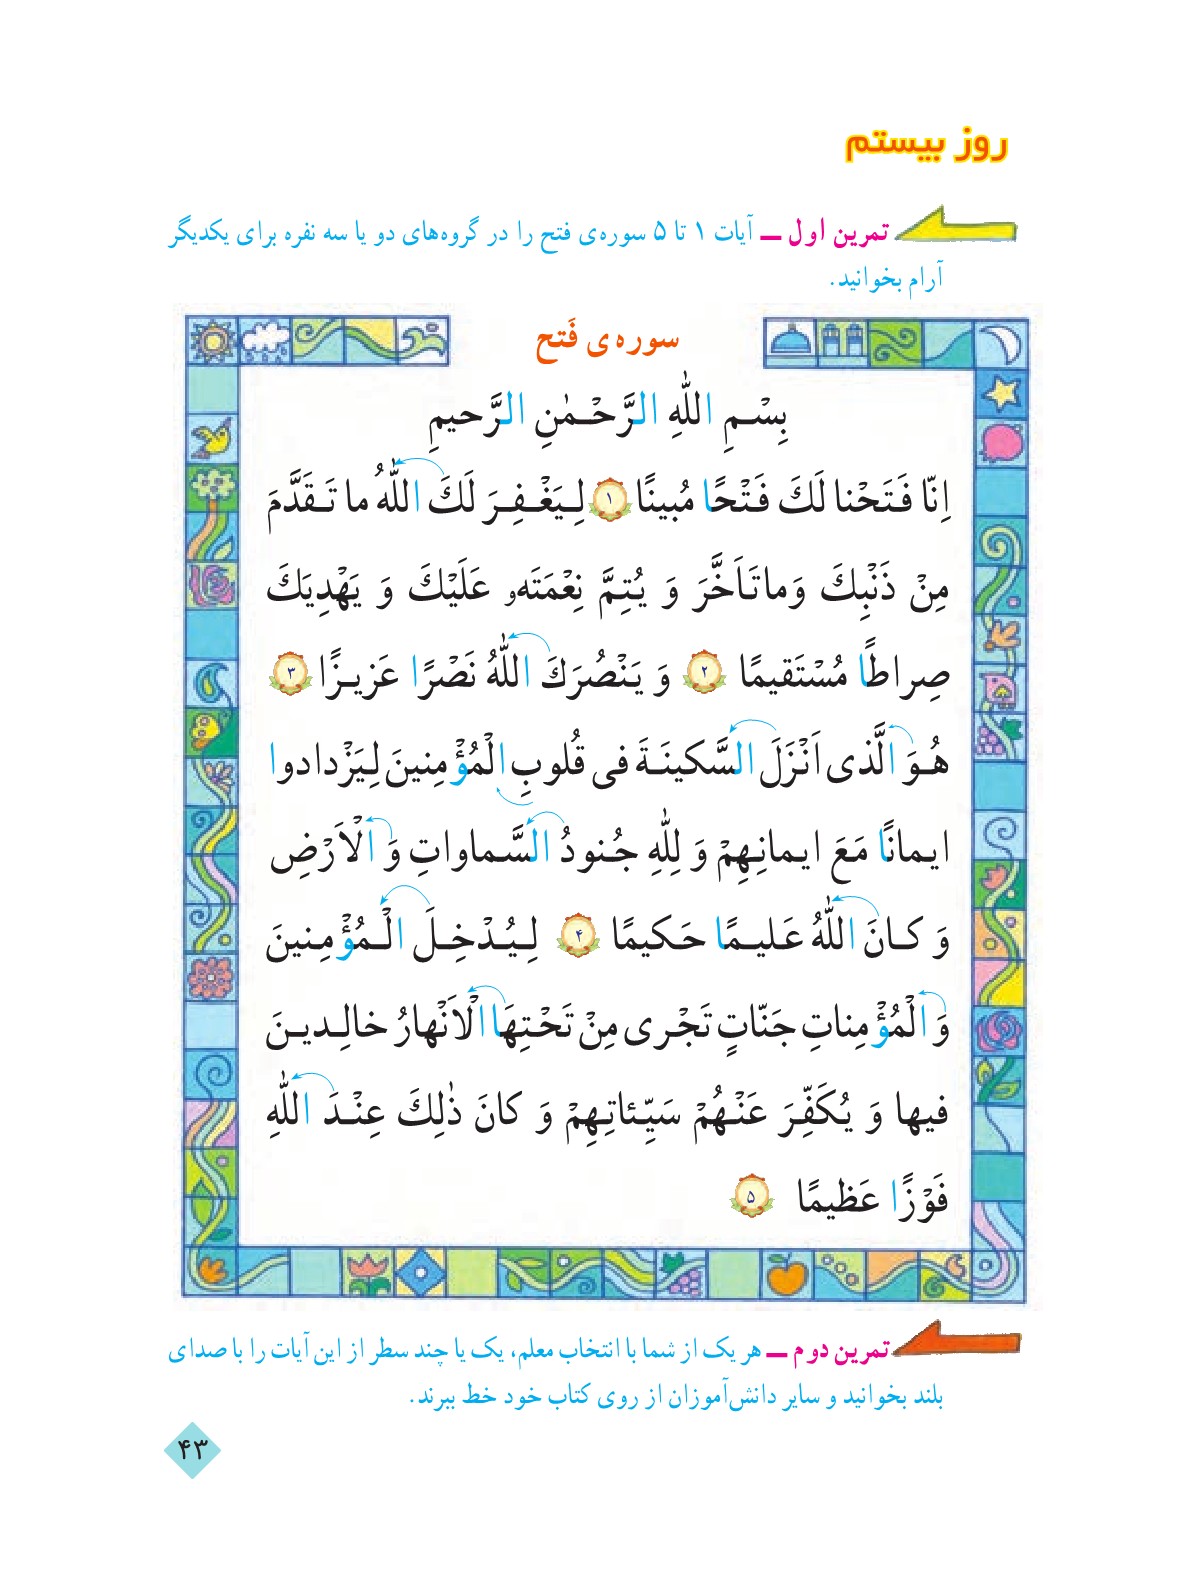 روز بیستم
تمرین اول ـ آیات ۱ تا ۵ سوره‌ی فتح را در گروه‌های دو یا سه نفره برای یکدیگر
آرام بخوانید.
سوره‌ی فَتح
بِسْمِ اللّٰهِ الرَّحْمٰنِ الرَّحیمِ
اِنّا فَتَحْنا لَكَ فَتْحًا مُبینًا ۱ لِیَغْفِرَ لَكَ اللّٰهُ ما تَقَدَّمَ
مِنْ ذَنْبِكَ وَ ما تَاَخَّرَ وَ یُتِمَّ نِعْمَتَهو عَلَیْكَ وَ یَهْدِیَكَ
صِراطًا مُسْتَقیمًا ۲ وَ یَنْصُرَكَ اللّٰهُ نَصْرًا عَزیزًا ۳
هُوَ الَّذی اَنْزَلَ السَّكینَةَ فی قُلوبِ الْمُؤْمِنینَ لِیَزْدادوا
ایمانًا مَعَ ایمانِهِمْ وَ لِلّٰهِ جُنودُ السَّماواتِ وَ الْاَرْضِ
وَ كانَ اللّٰهُ عَلیمًا حَكیمًا ۴ لِیُدْخِلَ الْمُؤْمِنینَ
وَ الْمُؤْمِناتِ جَنّاتٍ تَجْری مِنْ تَحْتِهَا الْاَنْهارُ خالِدینَ
فیها وَ یُكَفِّرَ عَنْهُمْ سَیِّئاتِهِمْ وَ كانَ ذٰلِكَ عِنْدَ اللّٰهِ
فَوْزًا عَظیمًا ۵
تمرین دوم ـ هر یک از شما با انتخاب معلم، یک یا چند سطر از این آیات را با صدای
بلند بخوانید و سایر دانش‌آموزان از روی کتاب خود خط ببرند.
۴۳